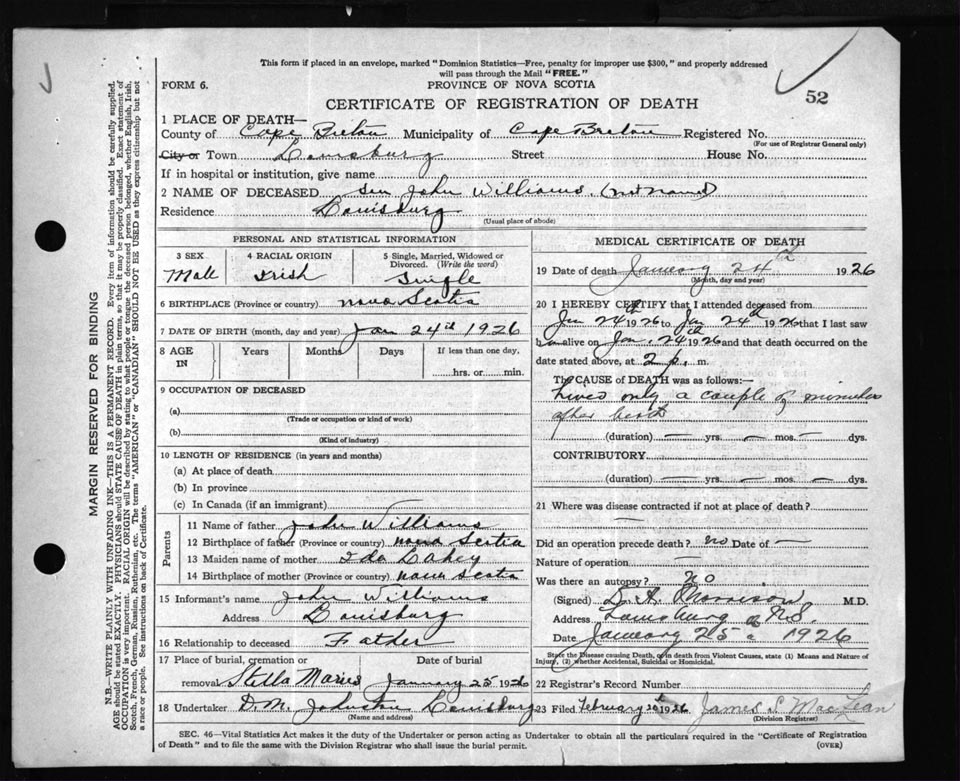 This form if placed in an envelope, marked "Dominion Statistics—Free, penalty for improper use $300," and properly addressed
will pass through the Mail "FREE."
FORM 6.
PROVINCE OF NOVA SCOTIA
52
CERTIFICATE OF REGISTRATION OF DEATH
1 PLACE OF DEATH—
County of Cape Breton Municipality of Cape Breton Registered No.
(For use of Registrar General only)
City or Town Louisburg Street House No.
If in hospital or institution, give name
2 NAME OF DECEASED John Williams (not named)
Residence Louisburg
(Usual place of abode)
PERSONAL AND STATISTICAL INFORMATION
3 SEX 4 RACIAL ORIGIN 5 Single, Married, Widowed or
Divorced. (Write the word)
Male Irish Single
6 BIRTHPLACE (Province or country) Nova Scotia
7 DATE OF BIRTH (month, day and year) Jan 24th 1926
8 AGE IN Years Months Days If less than one day,
hrs. or min.
9 OCCUPATION OF DECEASED
(a)
(Trade or occupation or kind of work)
(b)
(Kind of industry)
10 LENGTH OF RESIDENCE (in years and months)
(a) At place of death
(b) In province
(c) In Canada (if an immigrant)
Parents
11 Name of father John Williams
12 Birthplace of father (Province or country) Nova Scotia
13 Maiden name of mother Ida Lahey
14 Birthplace of mother (Province or country) Nova Scotia
15 Informant's name John Williams
Address Louisburg
16 Relationship to deceased Father
17 Place of burial, cremation or Date of burial
removal Stella Maries January 25 1926
18 Undertaker D.M. Johnston Louisburg
(Name and address)
MEDICAL CERTIFICATE OF DEATH
19 Date of death January 24th 1926
(Month, day and year)
20 I HEREBY CERTIFY that I attended deceased from
Jan 24th 1926 to Jan 24th 1926 that I last saw
h alive on Jan. 24th 1926 and that death occurred on the
date stated above, at 2 p. m.
The CAUSE of DEATH was as follows:—
Lived only a couple of minutes
after birth
(duration) — yrs. — mos. — dys.
CONTRIBUTORY
(duration) yrs. mos. dys.
21 Where was disease contracted if not at place of death?
—
Did an operation precede death? no Date of —
Nature of operation —
Was there an autopsy? No.
(Signed) D. A. Morrison M.D.
Address Louisburg N.S.
Date January 25 1926
State the Disease causing Death, or in death from Violent Causes, state (1) Means and Nature of
Injury, (2) whether Accidental, Suicidal or Homicidal.
22 Registrar's Record Number
23 Filed February 1926 James S. MacLean
(Division Registrar)
SEC. 46—Vital Statistics Act makes it the duty of the Undertaker or person acting as Undertaker to obtain all the particulars required in the "Certificate of Registration
of Death" and to file the same with the Division Registrar who shall issue the burial permit.
(OVER)
MARGIN RESERVED FOR BINDING
N.B.—WRITE PLAINLY WITH UNFADING INK—THIS IS A PERMANENT RECORD. Every item of information should be carefully supplied.
AGE should be stated EXACTLY. PHYSICIANS should STATE CAUSE OF DEATH in plain terms, so that it may be properly classified. Exact statement of
OCCUPATION is very important. RACIAL ORIGIN will be described by stating to what people or tongue the deceased person belonged, whether English, Irish,
Scotch, French, German, Russian, Ruthenian, etc. The terms "AMERICAN" or "CANADIAN" SHOULD NOT BE USED as they express citizenship but not
a race or people. See instructions on back of Certificate.